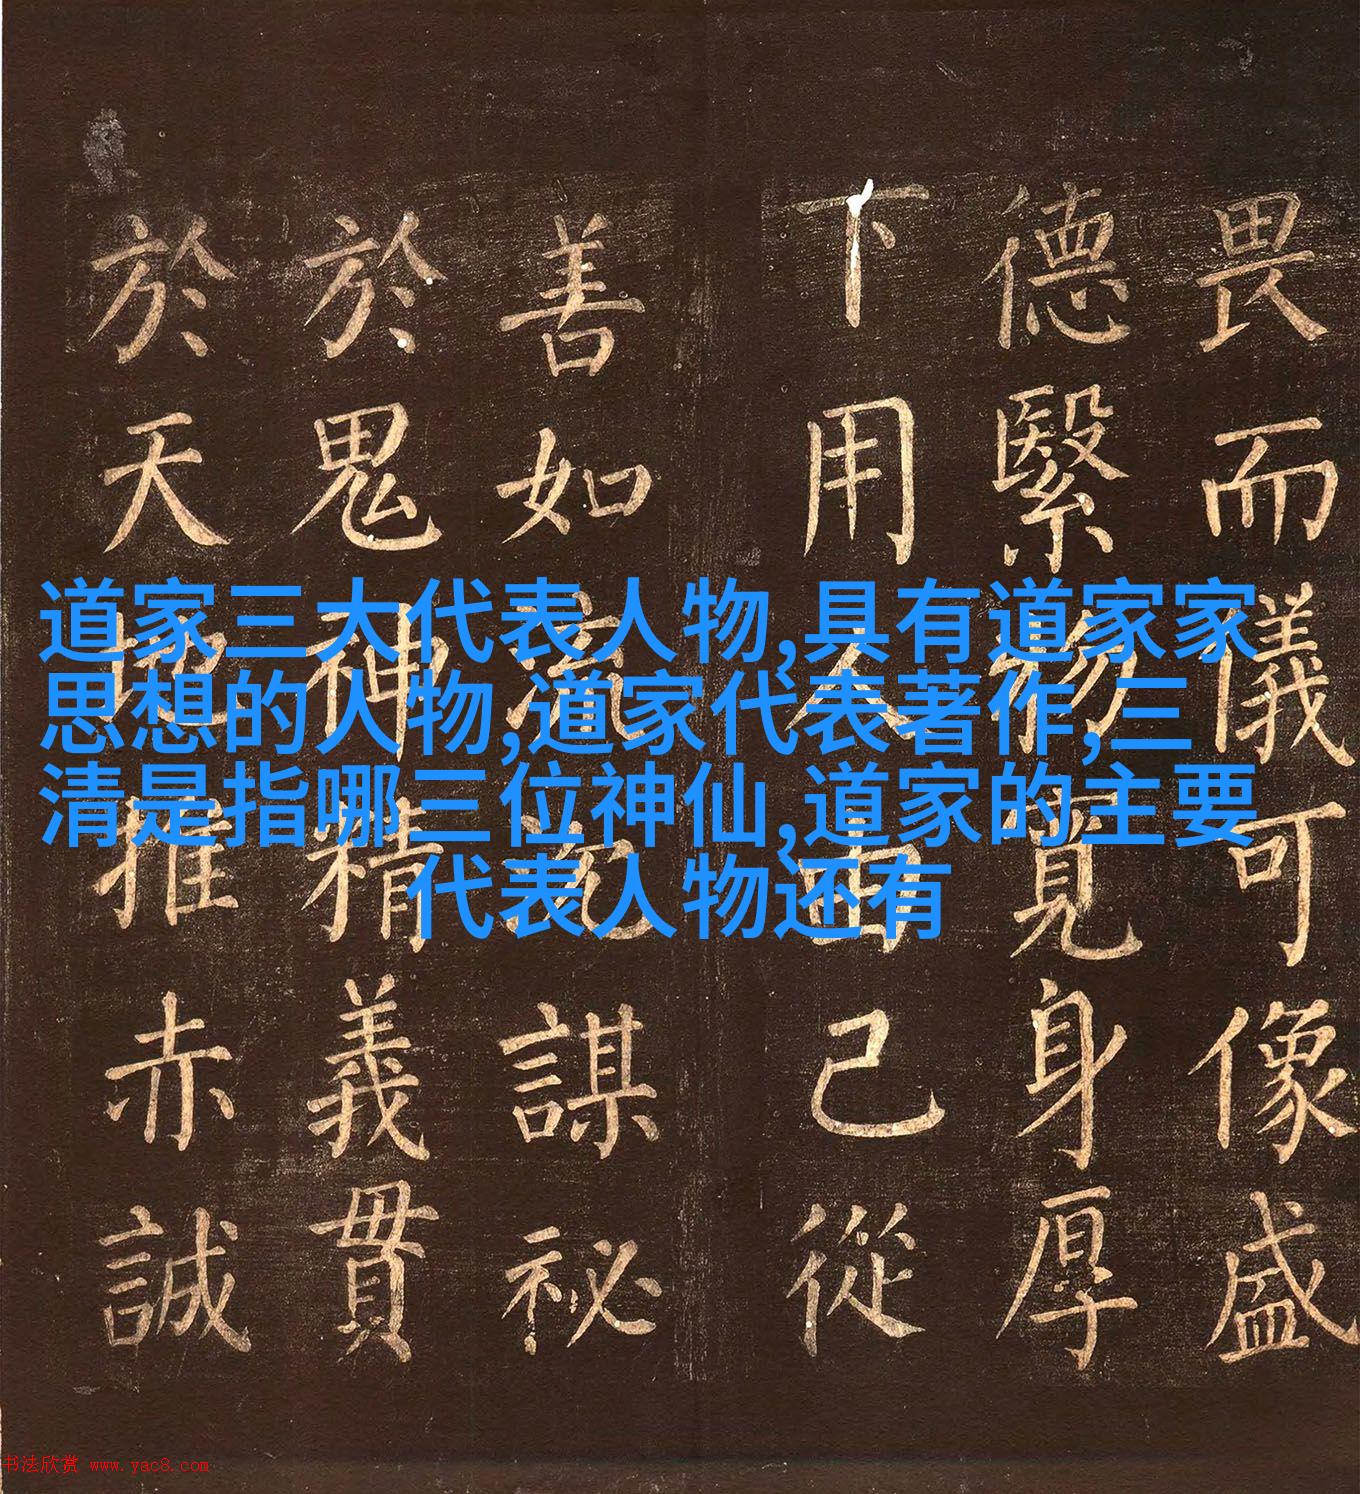 畏而儀可像盛
德繄物寬身厚
下用人由己從
善如謀祕
於鬼神精義貫
於天地推赤誠
道家三大代表人物,具有道家家
思想的人物,道家代表著作,三
清是指哪三位神仙,道家的主要
代表人物还有
书法欣赏 www.yac8.com